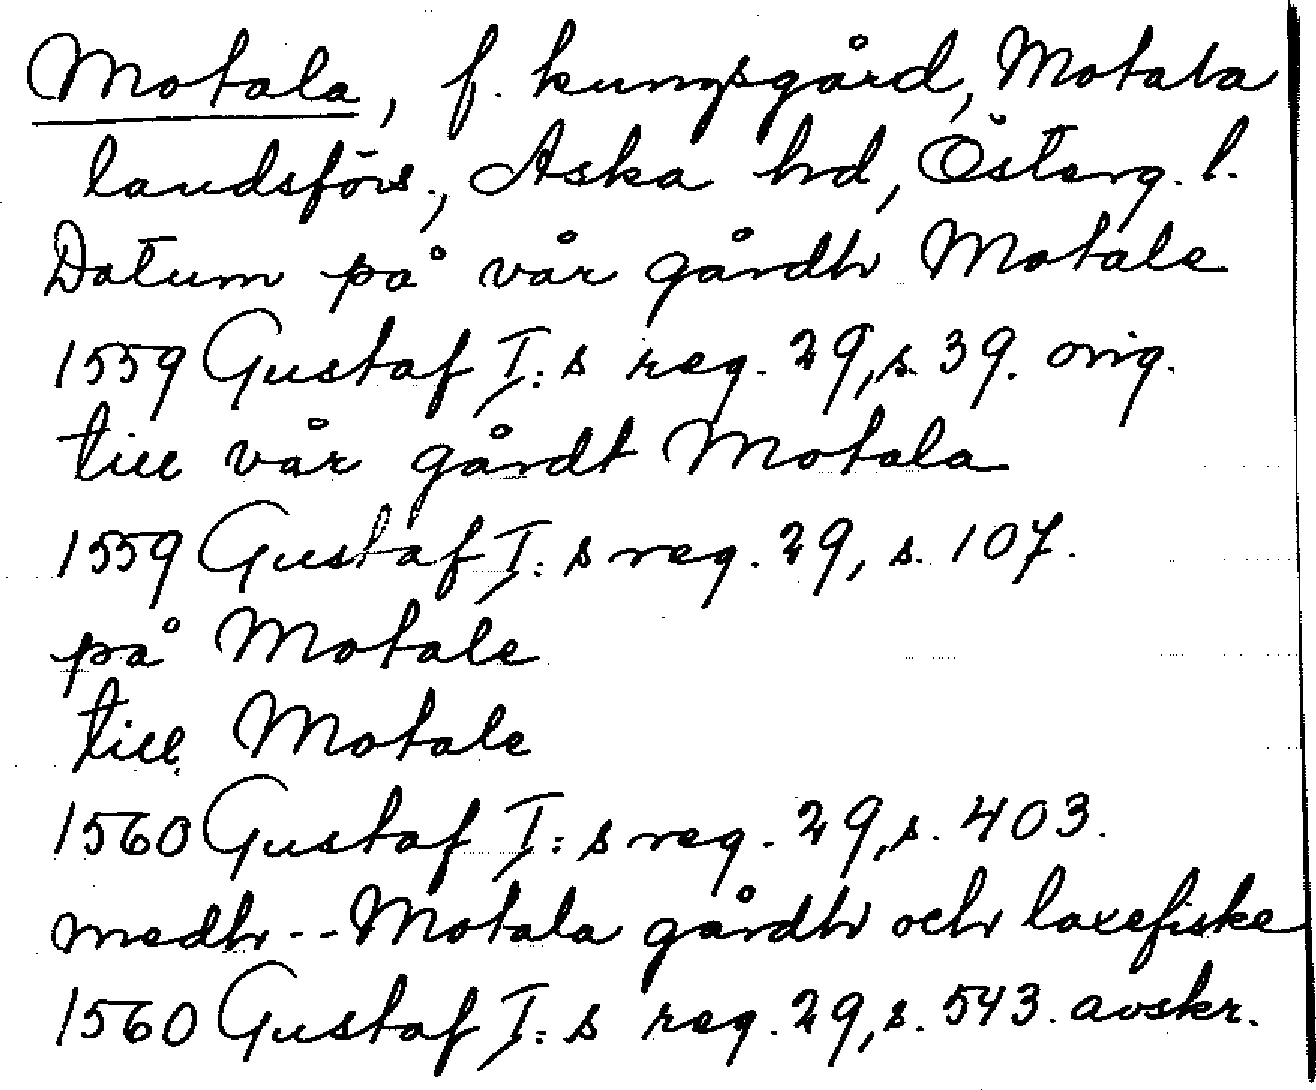 Motala, f. kungsgård, Motala
landsförs., Aska hd, Österg. l.
Datum på vår gårdh Motale
1559 Gustaf I:s reg. 29, s. 39. orig.
till vår gårdt Motala
1559 Gustaf I:s reg. 29, s. 107.
på Motale
till Motale
1560 Gustaf I:s reg. 29, s. 403.
medh -- Motala gårdh och laxefiske
1560 Gustaf I:s reg. 29, s. 543. avskr.